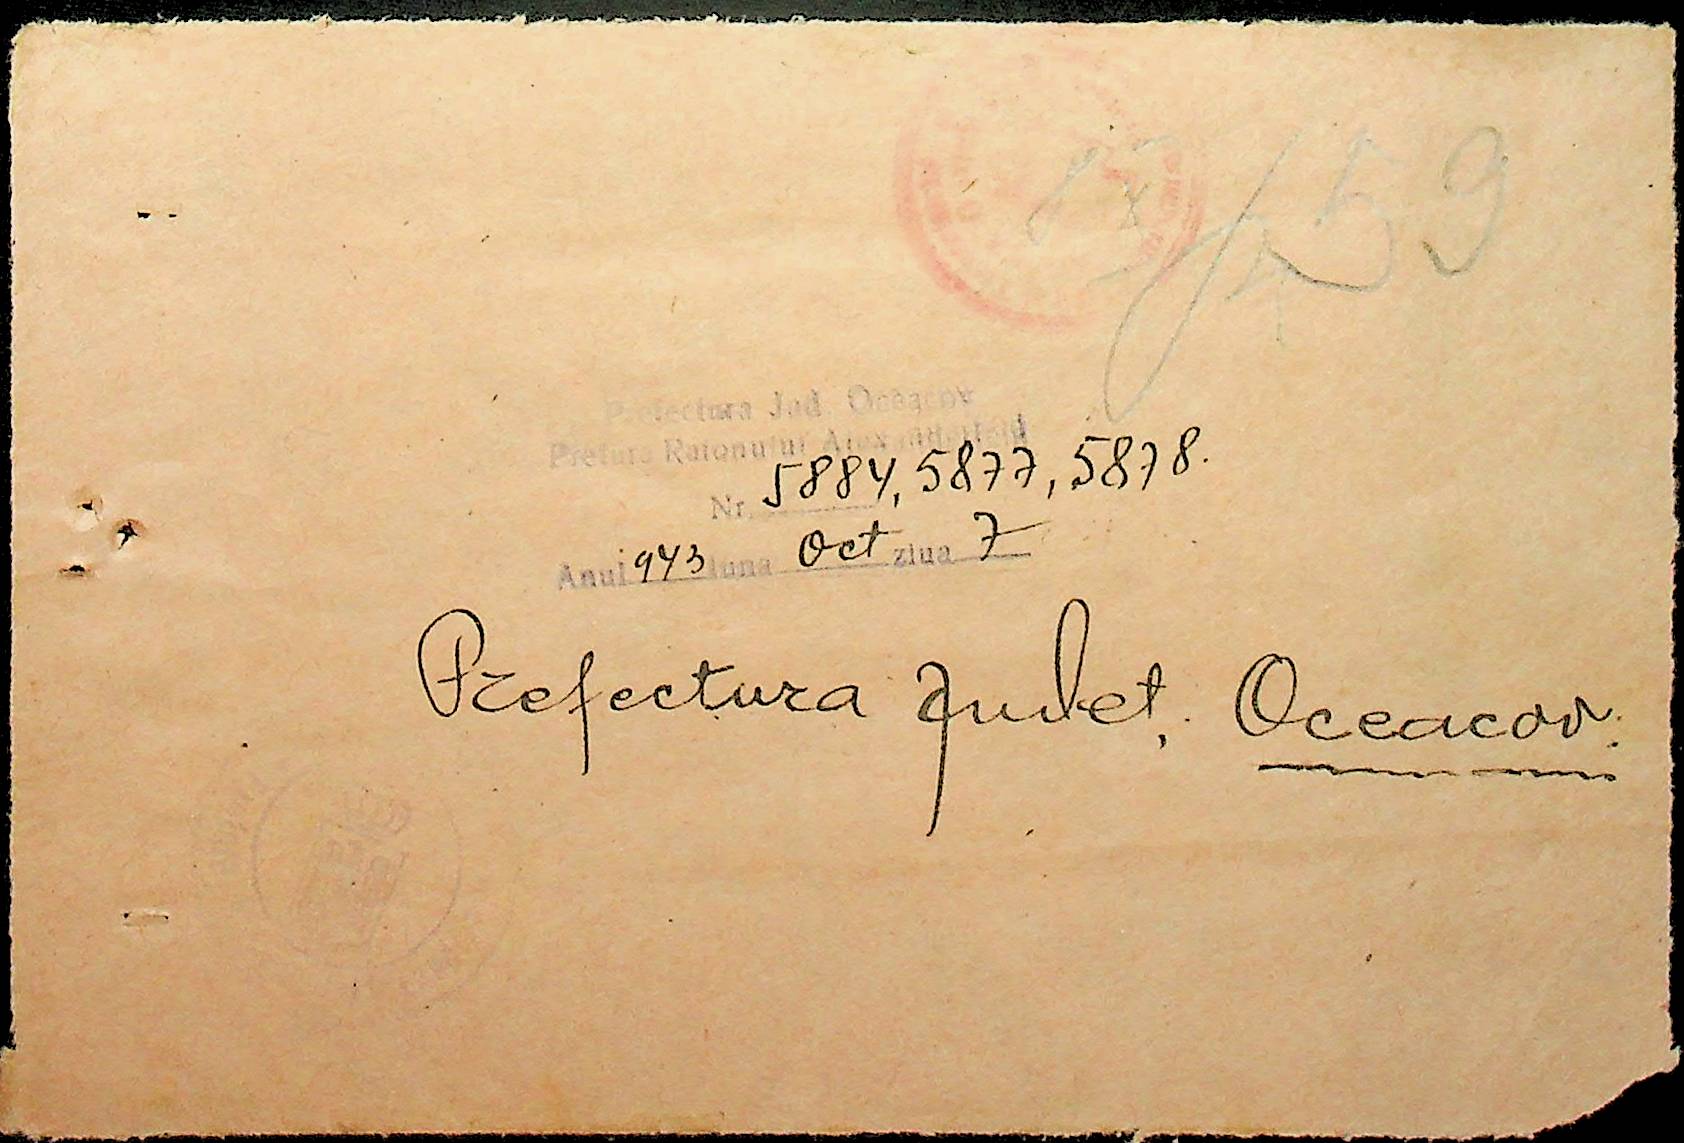 8 X
159
Prefectura Jud. Oceacov
Pretura Raionului Alexanderfeld
Nr. 5884, 5877, 5878.
Anul 943 luna Oct ziua 7
Prefectura Judet, Oceacov.